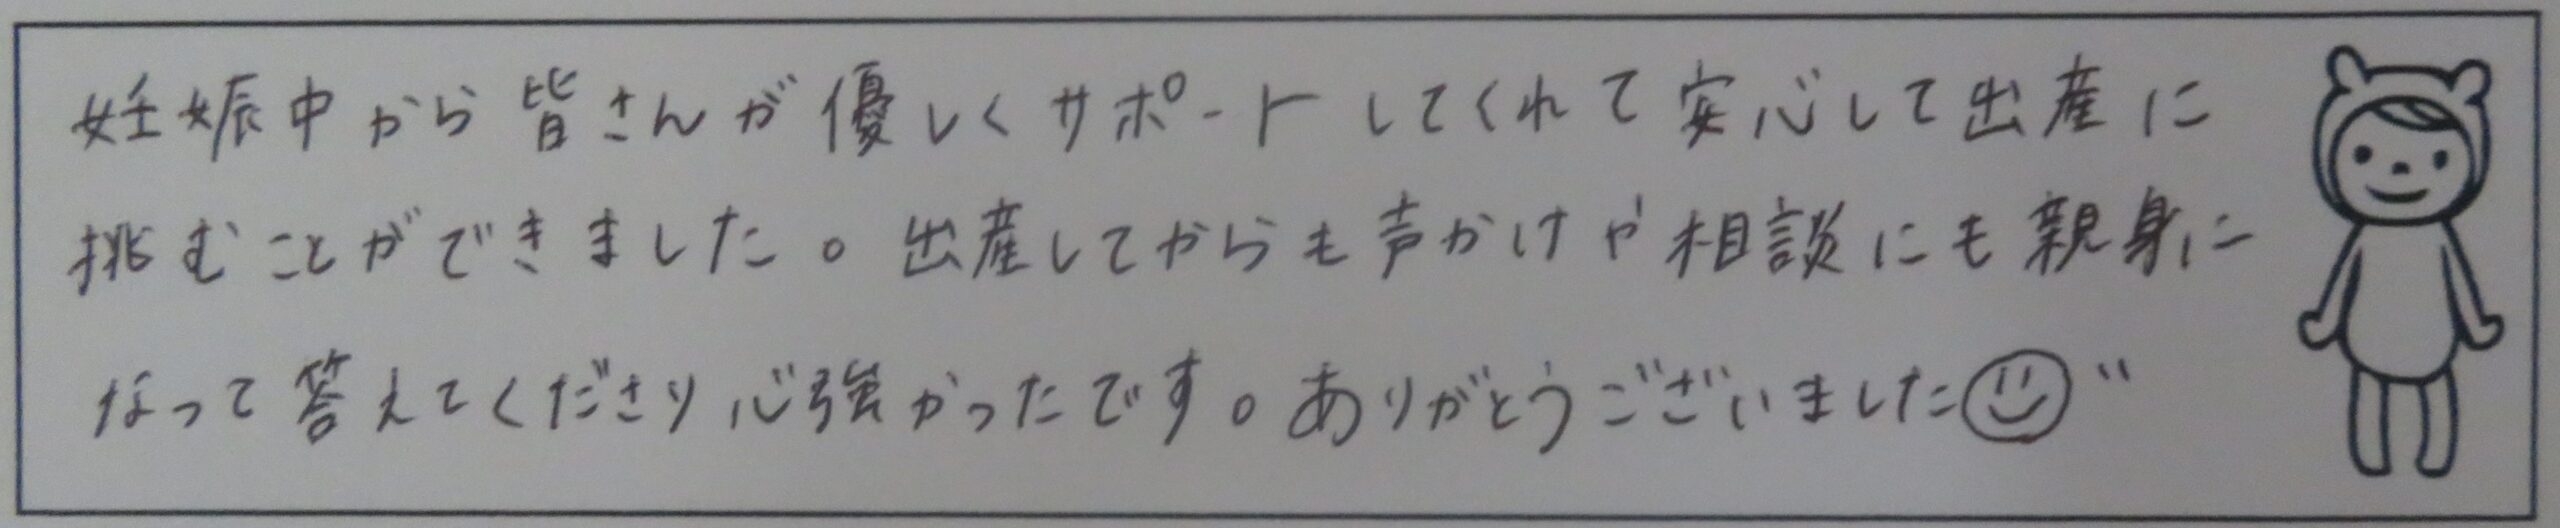 妊娠中から皆さんが優しくサポートしてくれて安心して出産に
挑むことができました。出産してからも声かけや相談にも親身に
なって答えてくださり心強かったです。ありがとうございました